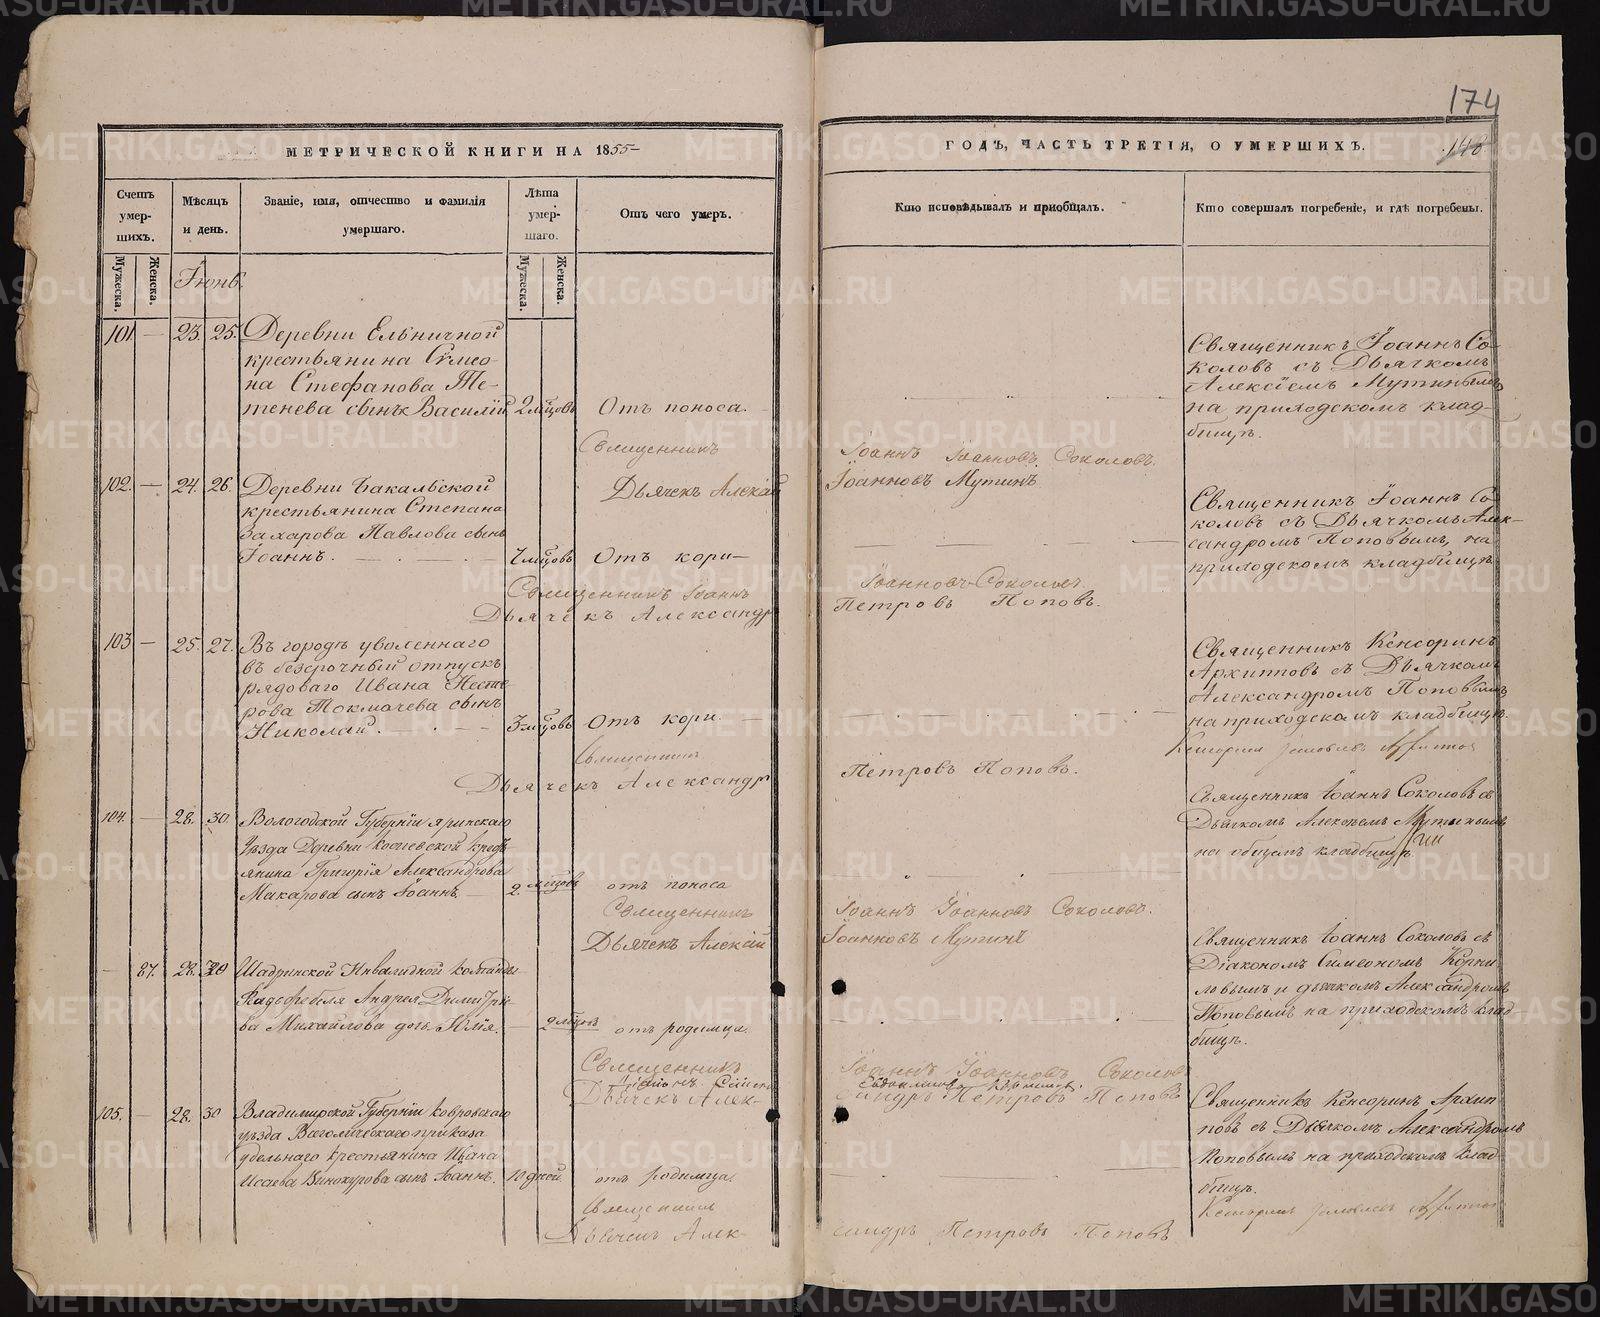 174
148
МЕТРИЧЕСКОЙ КНИГИ НА 1855
ГОДЪ, ЧАСТЬ ТРЕТІЯ, О УМЕРШИХЪ.
Счетъ умер-шихъ.
Мѣсяцъ и день.
Званіе, имя, отчество и фамилія умершаго.
Лѣта умер-шаго.
Отъ чего умеръ.
Кто исповѣдывалъ и пріобщалъ.
Кто совершалъ погребеніе, и гдѣ погребены.
Мужеска.
Женска.
Іюнь.
Мужеска.
Женска.
101 — 23. 25. Деревни Ельничной
крестьянина Сѵмео-
на Стефанова Те-
тенева сынъ Василій 2 мѣцовъ Отъ поноса.
Священникъ Іоаннъ Со-
коловъ съ Дьячкомъ
Алексіемъ Мутинымъ
на приходскомъ клад-
бищѣ.
Священникъ Іоаннъ Іоанновъ Соколовъ.
Дьячекъ Алексій Іоанновъ Мутинъ
102. — 24. 26. Деревни Бакальской
крестьянина Степана
Захарова Павлова сынъ
Іоаннъ. 7 мѣцовъ Отъ кори
Священникъ Іоаннъ Со-
коловъ съ Дьячкомъ Алек-
сандромъ Поповымъ, на
приходскомъ кладбищѣ
Священникъ Іоаннъ Іоанновъ Соколовъ.
Дьячекъ Александръ Петровъ Поповъ.
103 — 25. 27. Въ городѣ уволеннаго
въ безсрочный отпускъ
рядоваго Ивана Несте-
рова Токмачева сынъ
Николай. 3 мѣцовъ Отъ кори.
Священникъ Кенсоринъ
Архиповъ съ Дьячкомъ
Александромъ Поповымъ
на приходскомъ кладбищѣ
Священникъ Кенсоринъ
Дьячекъ Александръ Петровъ Поповъ.
104. — 28. 30. Вологодской Губерніи яринскаго
Уѣзда Деревни крестъ-
янина Григорія Александрова
Макарова сынъ Іоаннъ. 2. мѣцовъ отъ поноса
Священникъ Іоаннъ Соколовъ съ
Дьячкомъ Алексѣемъ Мутинымъ
на общемъ кладбищѣ
Священникъ Іоаннъ Іоанновъ Соколовъ.
Дьячекъ Алексій Іоанновъ Мутинъ
— 87. 28. 30 Шадринской Инвалидной команды
Андрея Димитріе-
ва Михайлова дочь Юлія. — 2 мѣцовъ отъ родимца.
Священникъ Іоаннъ Соколовъ съ
Діакономъ Симеономъ Корни-
ловымъ и дьячкомъ Александромъ
Поповымъ на приходскомъ клад-
бищѣ.
Священникъ Іоаннъ Іоанновъ Соколовъ
Дьячекъ Алек-сандръ Петровъ Поповъ
105. — 28. 30 Владимирской Губерніи ковровскаго
уѣзда приказа
Удельнаго крестьянина Ивана
Исаева Винокурова сынъ Іоаннъ. 10 дней. отъ родимца.
Священникъ Кенсоринъ Архип-
повъ съ Дьячкомъ Александромъ
Поповымъ на приходскомъ клад-
бищѣ.
Священникъ Кенсоринъ
Дьячекъ Алек-сандръ Петровъ Поповъ
METRIKI.GASO-URAL.RU